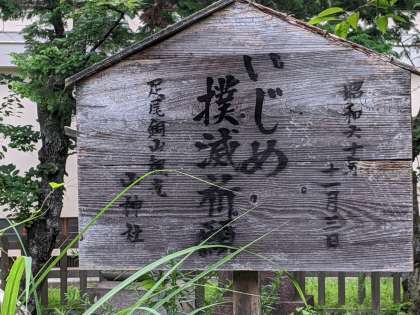 昭和六十年
十一月三日
いじめ
撲滅祈願
足尾銅山観光
山神社